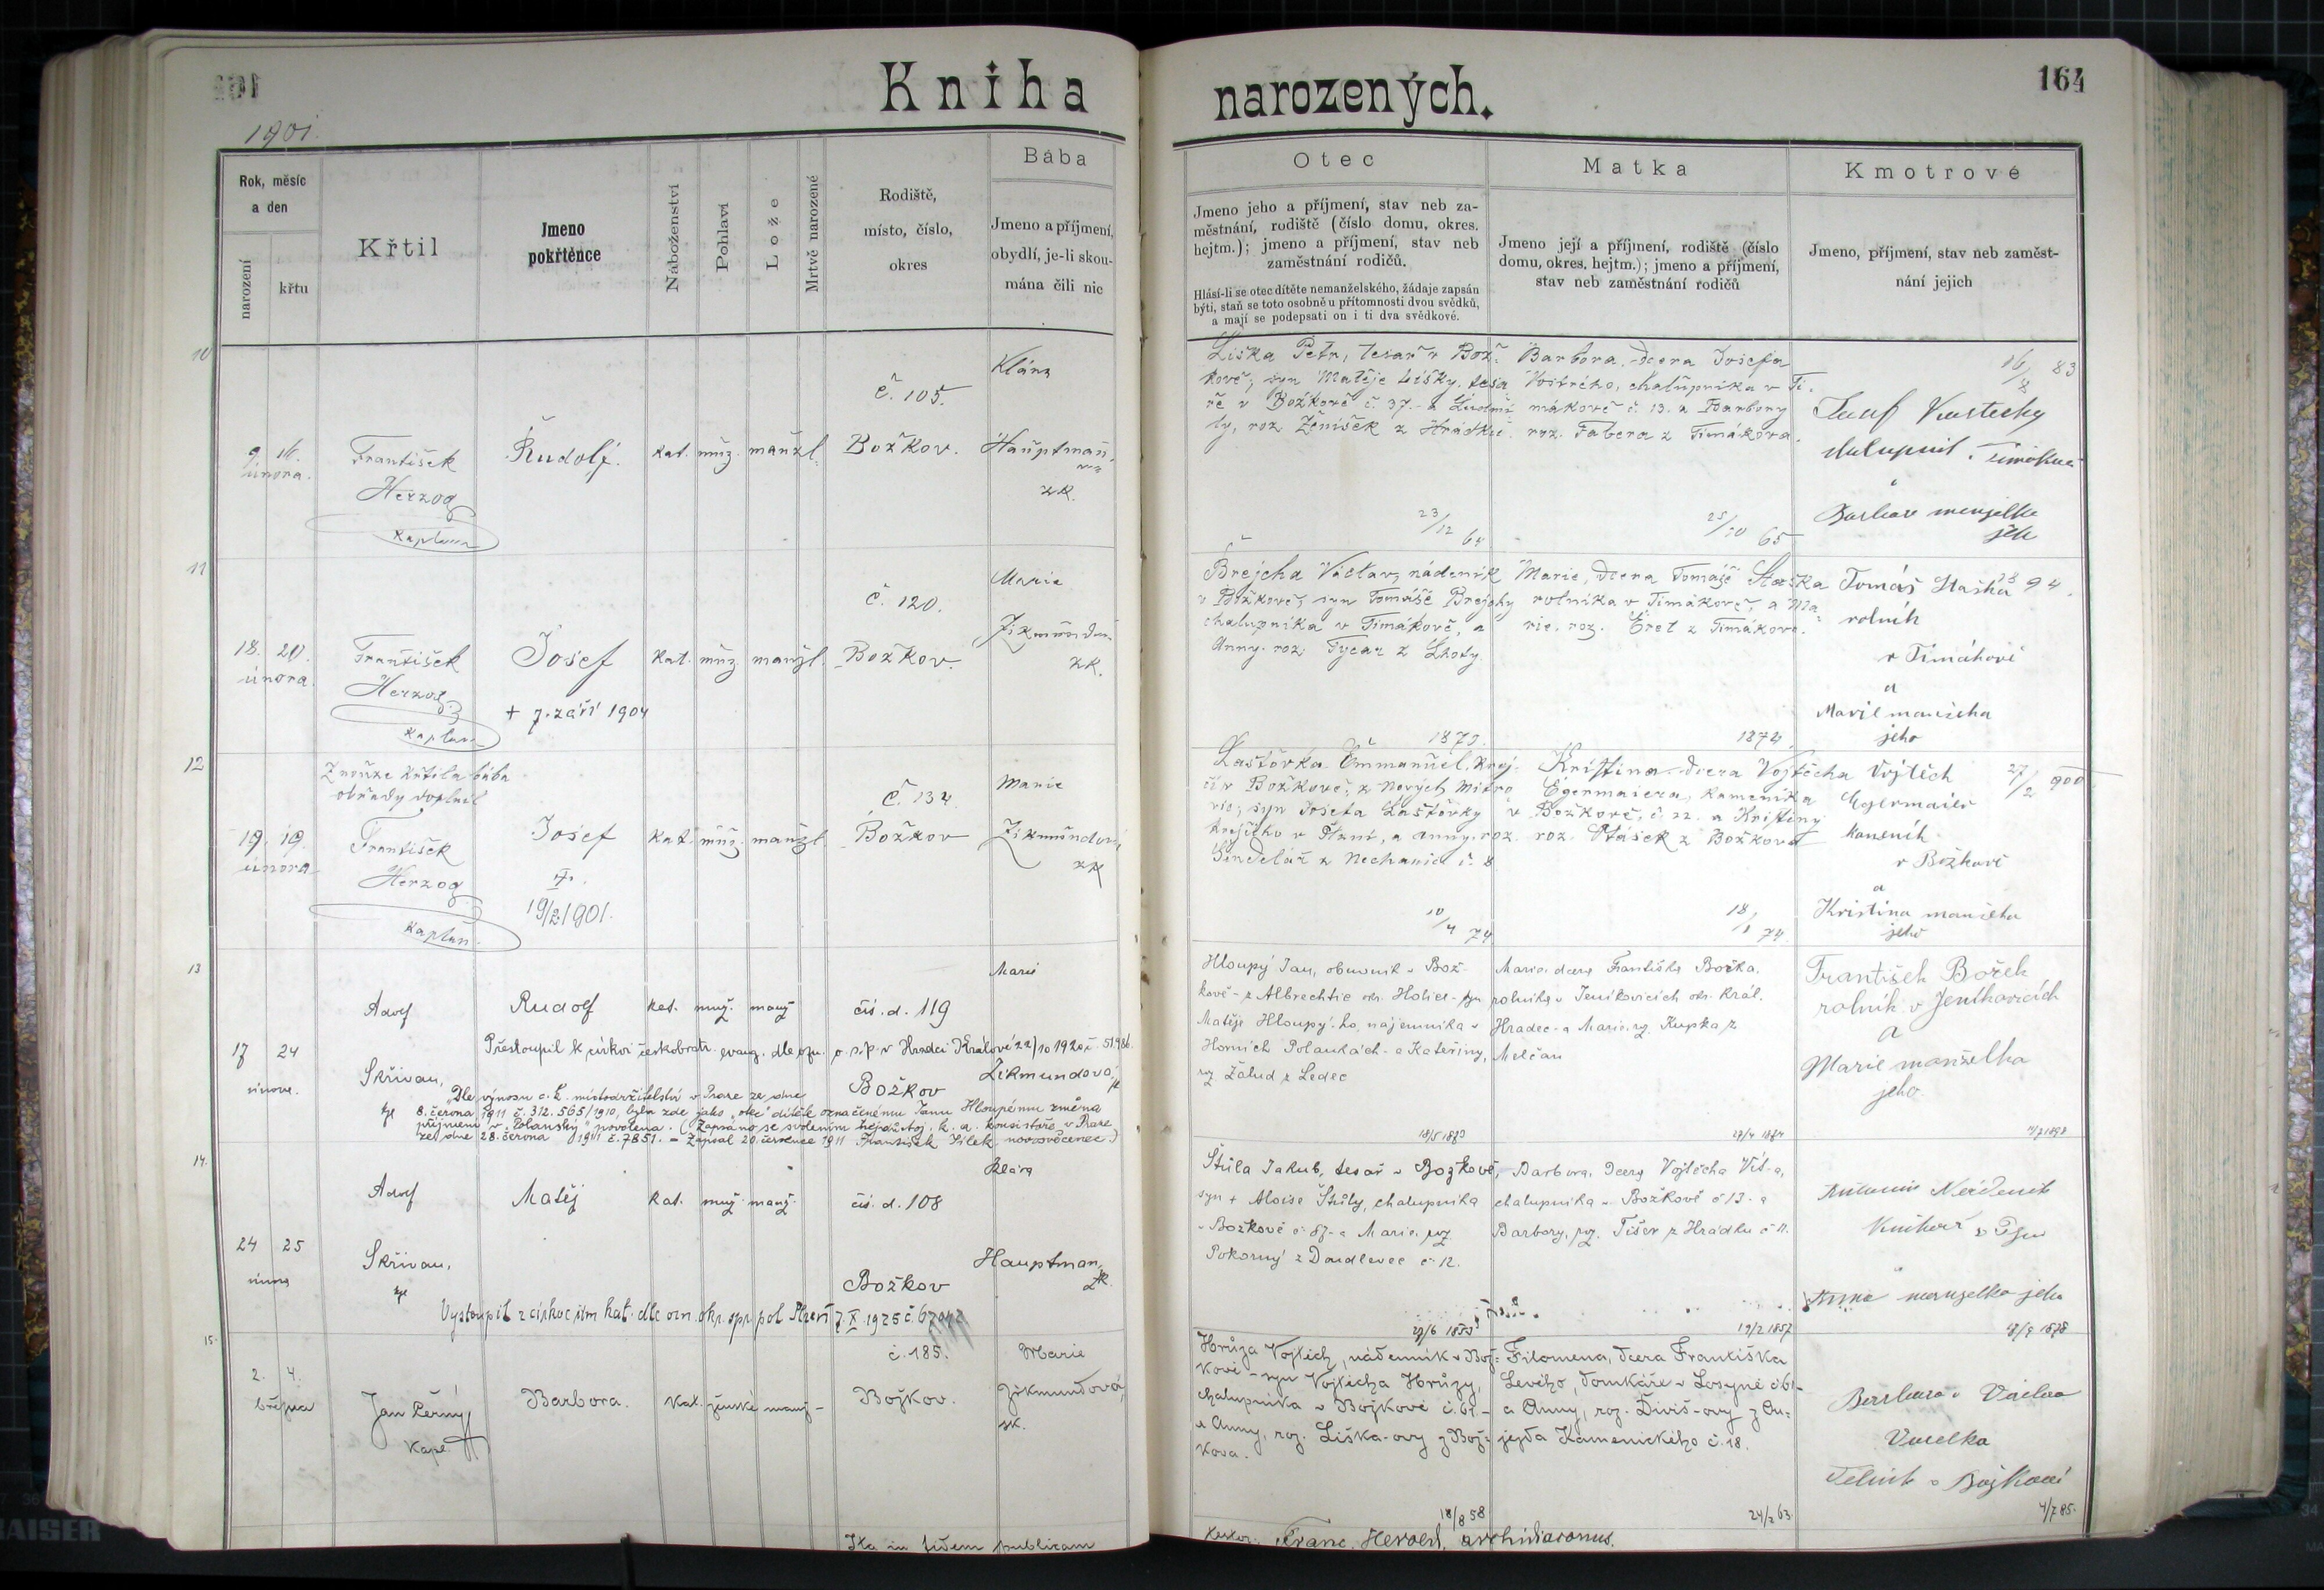 Kniha narozených.
164
1901.
Rok, měsíc
a den
narození
křtu
Křtil
Jmeno
pokřtěnce
Náboženství
Pohlaví
Lože
Mrtvě narozené
Rodiště,
místo, číslo,
okres
Bába
Jmeno a příjmení,
obydlí, je-li skou-
mána čili nic
Otec
Jmeno jeho a příjmení, stav neb za-
městnání, rodiště (číslo domu, okres.
hejtm.); jmeno a příjmení, stav neb
zaměstnání rodičů.
Hlásí-li se otec dítěte nemanželského, žádaje zapsán
býti, staň se toto osobně u přítomnosti dvou svědků,
a mají se podepsati on i ti dva svědkové.
Matka
Jmeno její a příjmení, rodiště (číslo
domu, okres. hejtm.); jmeno a příjmení,
stav neb zaměstnání rodičů
Kmotrové
Jmeno, příjmení, stav neb zaměst-
nání jejich
10
9. 16.
února.
František
Herzog
kaplan
Rudolf.
kat. muž. manžl.
č. 105.
Božkov.
Klára
Hauptman.
zk.
Liška Petr, tesař v Bož-
kově, syn Matěje Lišky, tesa
ře v Božkově č. 37. a Ludmi
ly, roz. Ženíšek z Hrádku.
23/12 64
Barbora dcera Josefa
chalupníka v Ti-
mákově č. 13. a Barbory
roz. Fabera z Timákova.
25/10 65
16/8 83
11
18. 20.
února.
František
Herzog
kaplan
Josef
+ 7. září 1904
kat. muž. manžl.
č. 120.
Božkov.
Marie
Zikmundov
zk.
Brejcha Václav, nádeník
v Božkově, syn Tomáše Brejchy
chalupníka v Timákově, a
Anny. roz. Tycar z Lhoty
1873.
Marie, dcera Tomáše Staška
rolníka v Timákově, a Ma-
rie, roz. Eret z Timákova.
1874.
Tomáš Staška 94.
rolník
v Timákově
a
Marie manželka
jeho
12
Z nouze křtila bába
obřady doplnil
19. 19.
února
František
Herzog
kaplan.
Josef
19/2 1901.
kat. muž. manžl.
č. 134.
Božkov
Marie
Zikmundová
zk
Laštovka Emmanuel, krej-
čí v Božkově, z Nových Mitro
vic, syn Josefa Laštovky
krejčího v Štáhl, a Anny, roz.
Šindelář z Nechanic č. 8
10/4 74
Kristina dcera Vojtěcha
Egermaiera, kameníka
v Božkově, č. 22. a Kristiny
roz. Ptášek z Božkova
18/1 74
Vojtěch 27/2 900
Egermaier
kameník
v Božkově
a
Kristina manželka
jeho
13
17 24
února.
Adolf
Skřivan,
Rudolf
kat. muž. manž
čís. d. 119
Božkov
Marie
Zikmundová
Přestoupil k církvi českobratr. evang. dle ozn. o. s. p. v Hradci Králové 22/10 1920 č. 51986.
"Dle výnosu c. k. místodržitelství v Praze ze dne
8. června 1911 č. 312.565/1910, byla zde jako "otec" dítěte označenému Janu Hloupému změna
příjmení v "Polanský" povolena. (Zapsáno se svolením nejdůstoj. k. a. konsistoře v Praze
ze dne 28. června 1911 č. 7851. - Zapsal 20. července 1911 František Šílek novosvěcenec.)
Hloupý Jan, obuvník v Bož-
kově - z Albrechtic okr. Holice - syn
Matěje Hloupý-ho, nájemníka v
Horních Polankách - a Kateřiny,
roz Žalud z Ledec
18/5 1873
Marie, dcera Františka Božka,
rolníka v Jeníkovicích okr. Král.
Hradec - a Marie, roz. Kupka z
Melčan
František Božek
rolník v Jeníkovicích
a
Marie manželka
jeho.
14.
24 25
února
Adolf
Skřivan,
Matěj
kat. muž. manž.
čís. d. 108
Božkov
Klára
Hauptman,
zk.
Vystoupil z církve řím. kat. dle ozn. okr. spr. pol. Plzeň 7. X. 1925 č. 67042
Štila Jakub, tesař v Božkově,
syn + Aloise Štily, chalupníka
v Božkově č. 87 - a Marie, roz
Pokorný z Doudlevec č. 12.
Barbora, dcera Vojtěcha Vít-a,
chalupníka v Božkově č 13 - a
Barbory, roz. Tišer z Hrádku č 11.
19/2 1857
Anna manželka jeho
15.
2. 4.
března
Jan Černý
Kapl.
Barbora.
kat. ženské manž-
č. 185.
Božkov.
Marie
Zikmundová,
zk.
Hrůza Vojtěch, nádenník v Bož-
kově - syn Vojtěcha Hrůzy,
chalupníka v Božkově č. 61. -
a Anny, roz. Liška-ovy z Bož-
kova.
18/8 58
Filomena, dcera Františka
Levého, domkáře v Losyně č 61 -
a Anny, roz. Diviš-ovy z Ou-
jezda Kamenického č. 18.
24/2 63.
Barbora a Václav
v Božkově
4/7 85.
Ita in fidem publicam
Franc. Herold, archidiaconus.